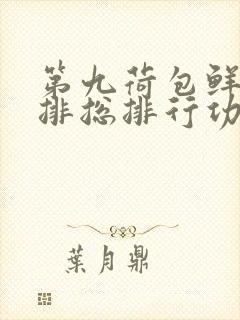 第九荷包鲜
排总排行功
葉月鼎